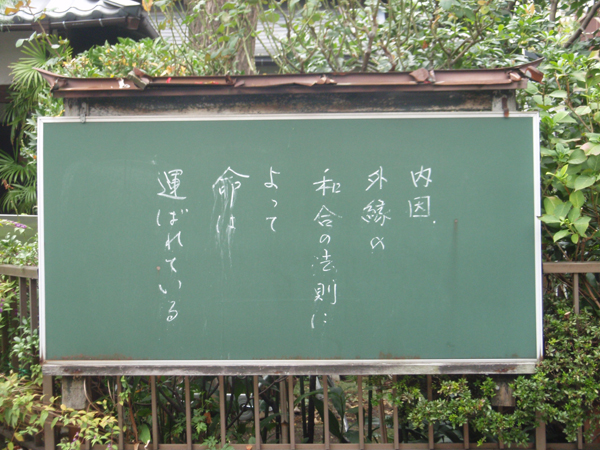 内因.
外縁の
和合の法則に
よって
命は
運ばれている